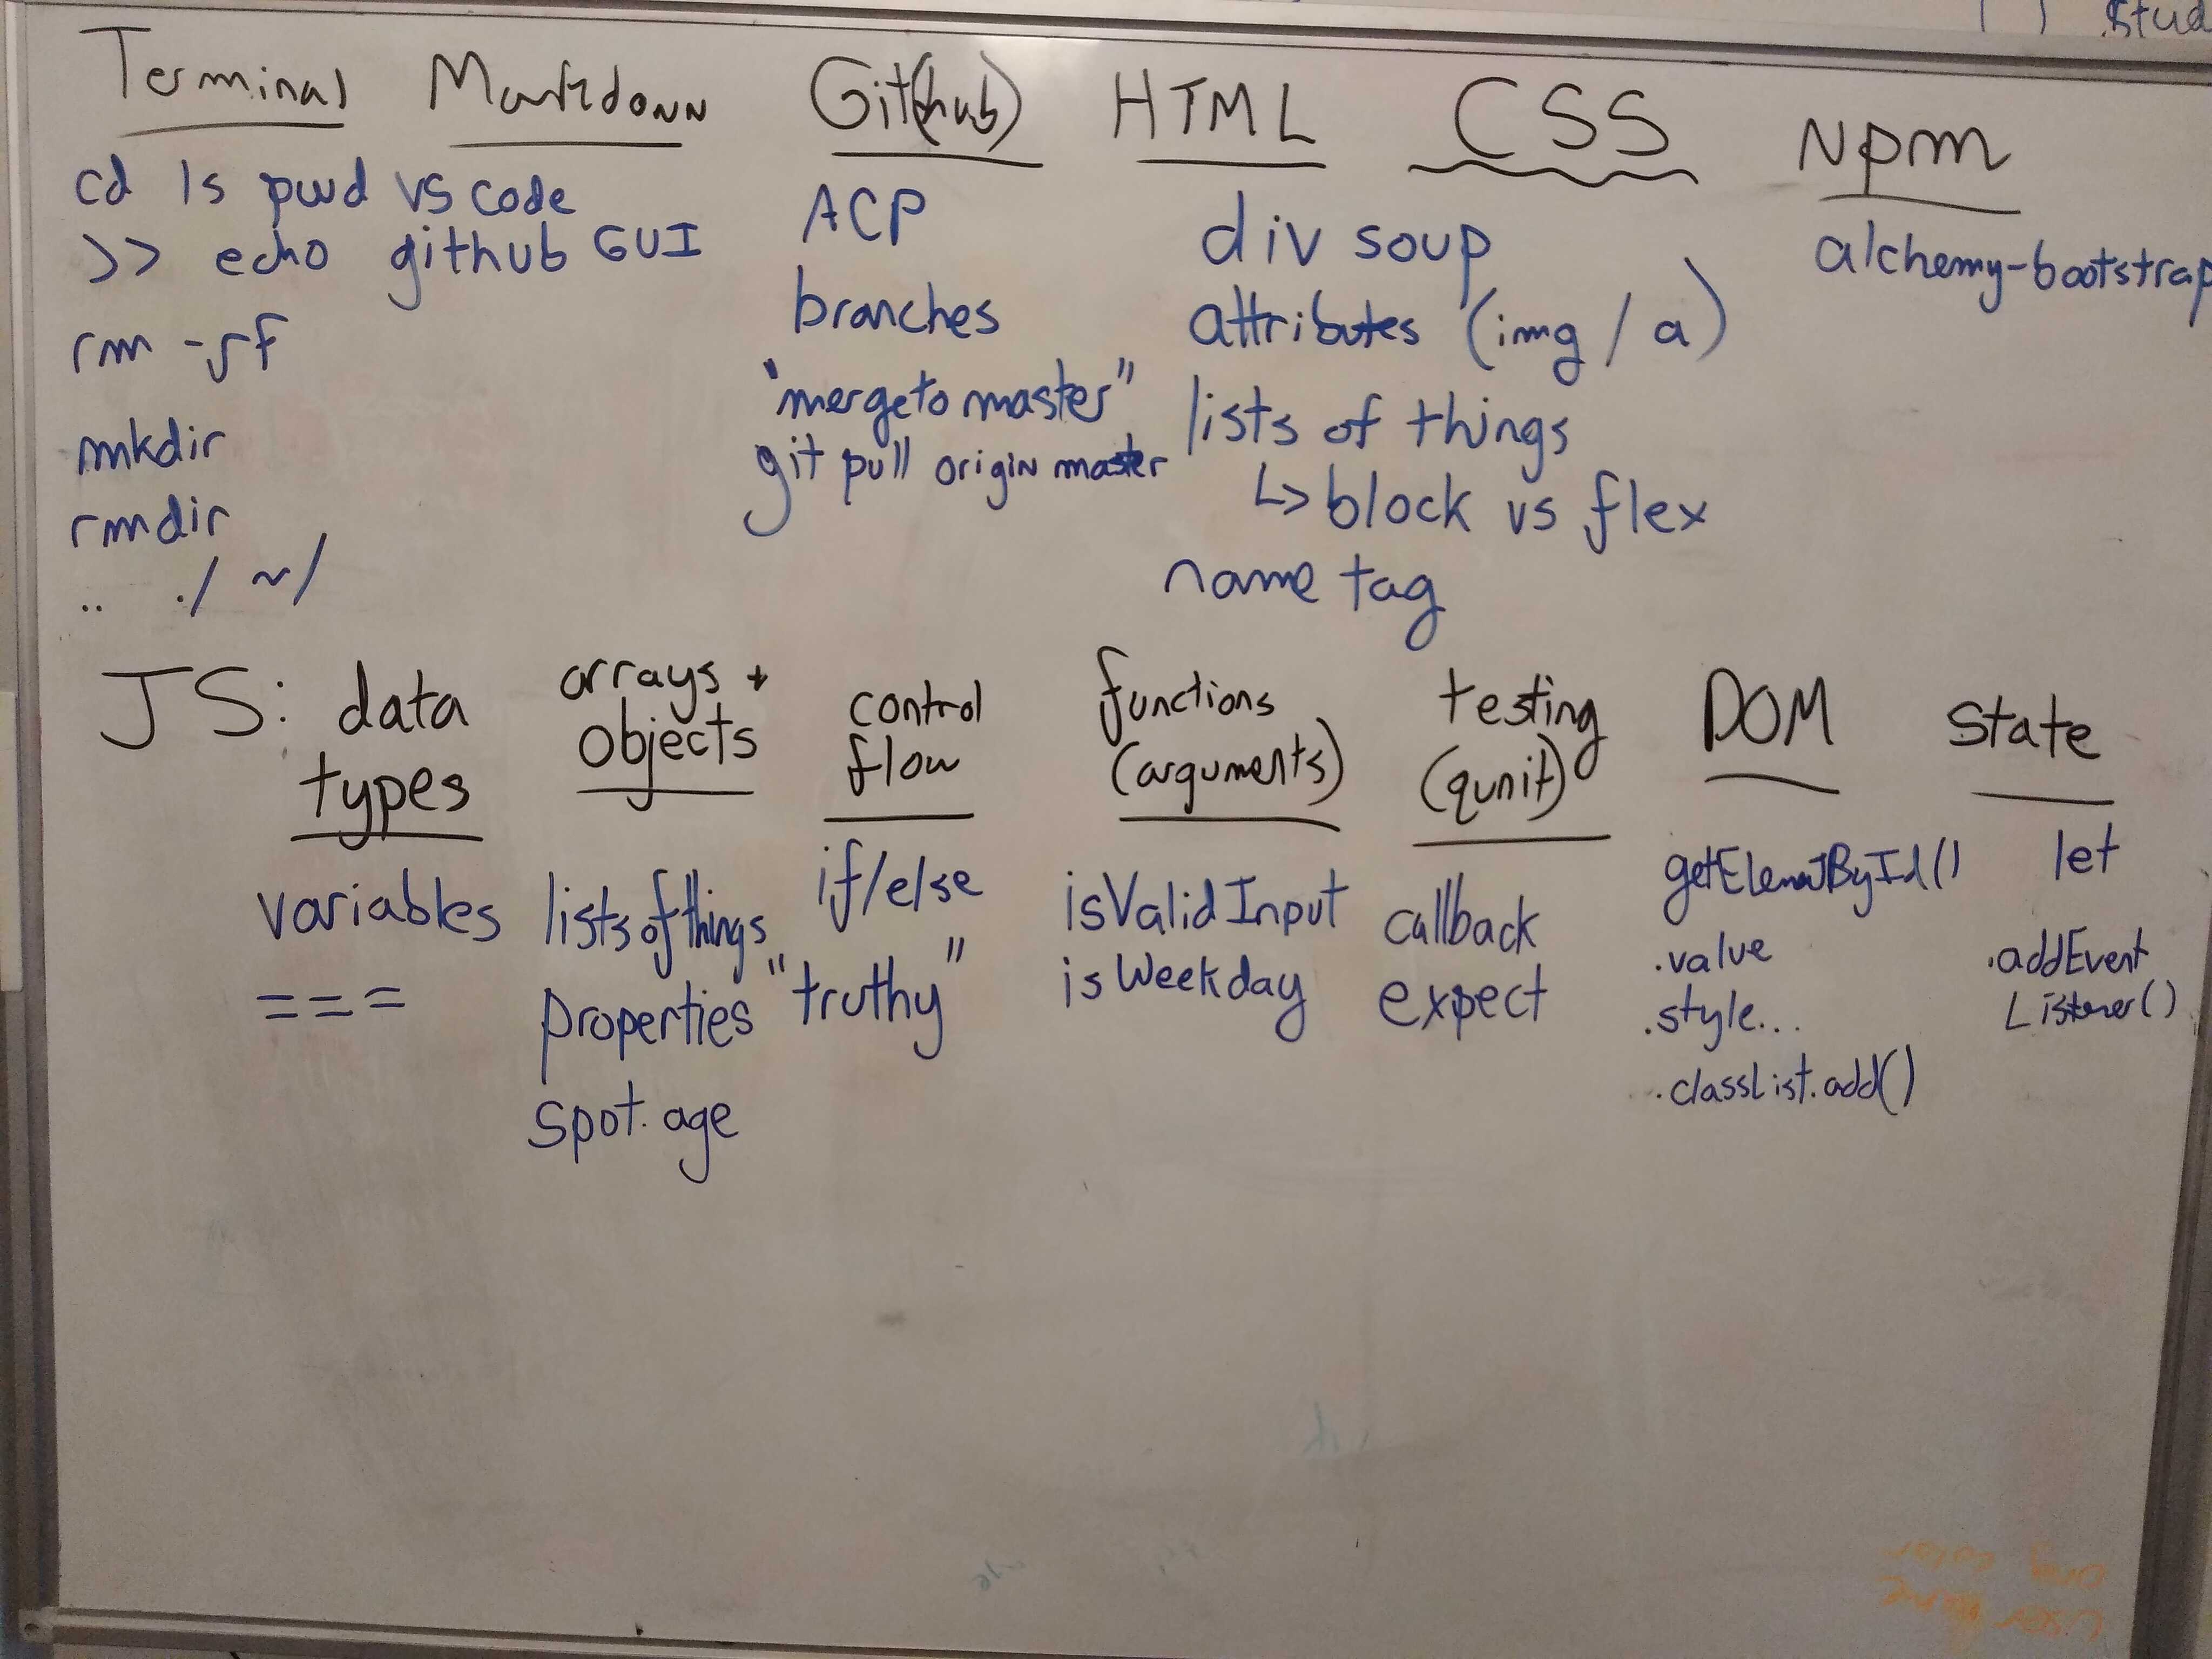 Stud
Terminal Markdown Git(hub) HTML CSS Npm
cd ls pwd vs code
>> echo github GUI
rm -rf
mkdir
rmdir
.. ./ ~/
ACP
branches
"merge to master"
git pull origin master
div soup
attributes (img / a)
lists of things
↳ block vs flex
name tag
alchemy-bootstrap
JS: data types
variables
===
arrays +
objects
lists of things
properties
spot.age
control
flow
if/else
"truthy"
functions
(arguments)
isValidInput
isWeekday
testing
(qunit)
callback
expect
DOM
getElementById()
.value
.style...
.classList.add()
State
let
.addEvent
Listener()